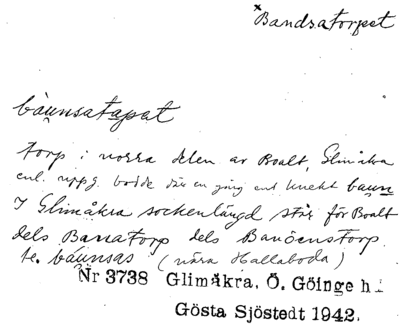 ×Bandsatorpet
bàu̲nsata̲pat
torp i norra delen av Boalt, Glimåkra
enl. uppg. bodde där en gång ent knekt bau̲n
I Glimåkra sockenlängd står för Boalt
dels Bansatorp dels Banöenstorp.
te. bàu̲nsas (nära Hallaboda)
Nr 3738 Glimåkra, Ö. Göinge h.
Gösta Sjöstedt 1942.